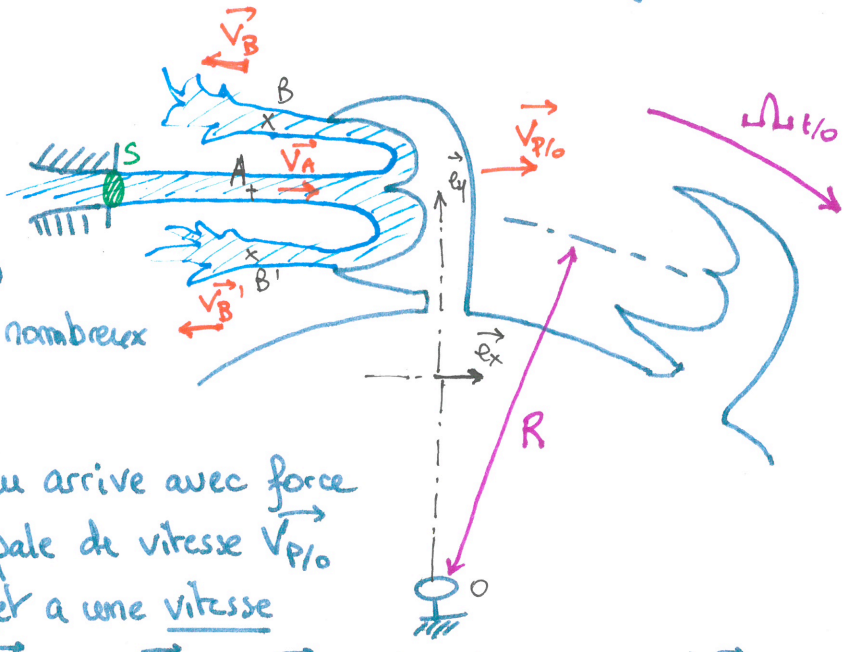 V_B
B
S
A
V_A
V_P/0
Ω t/0
e_y
B'
V_B'
nombreux
e_x
R
arrive avec force
pale de vitesse V_P/0
et a une vitesse
O